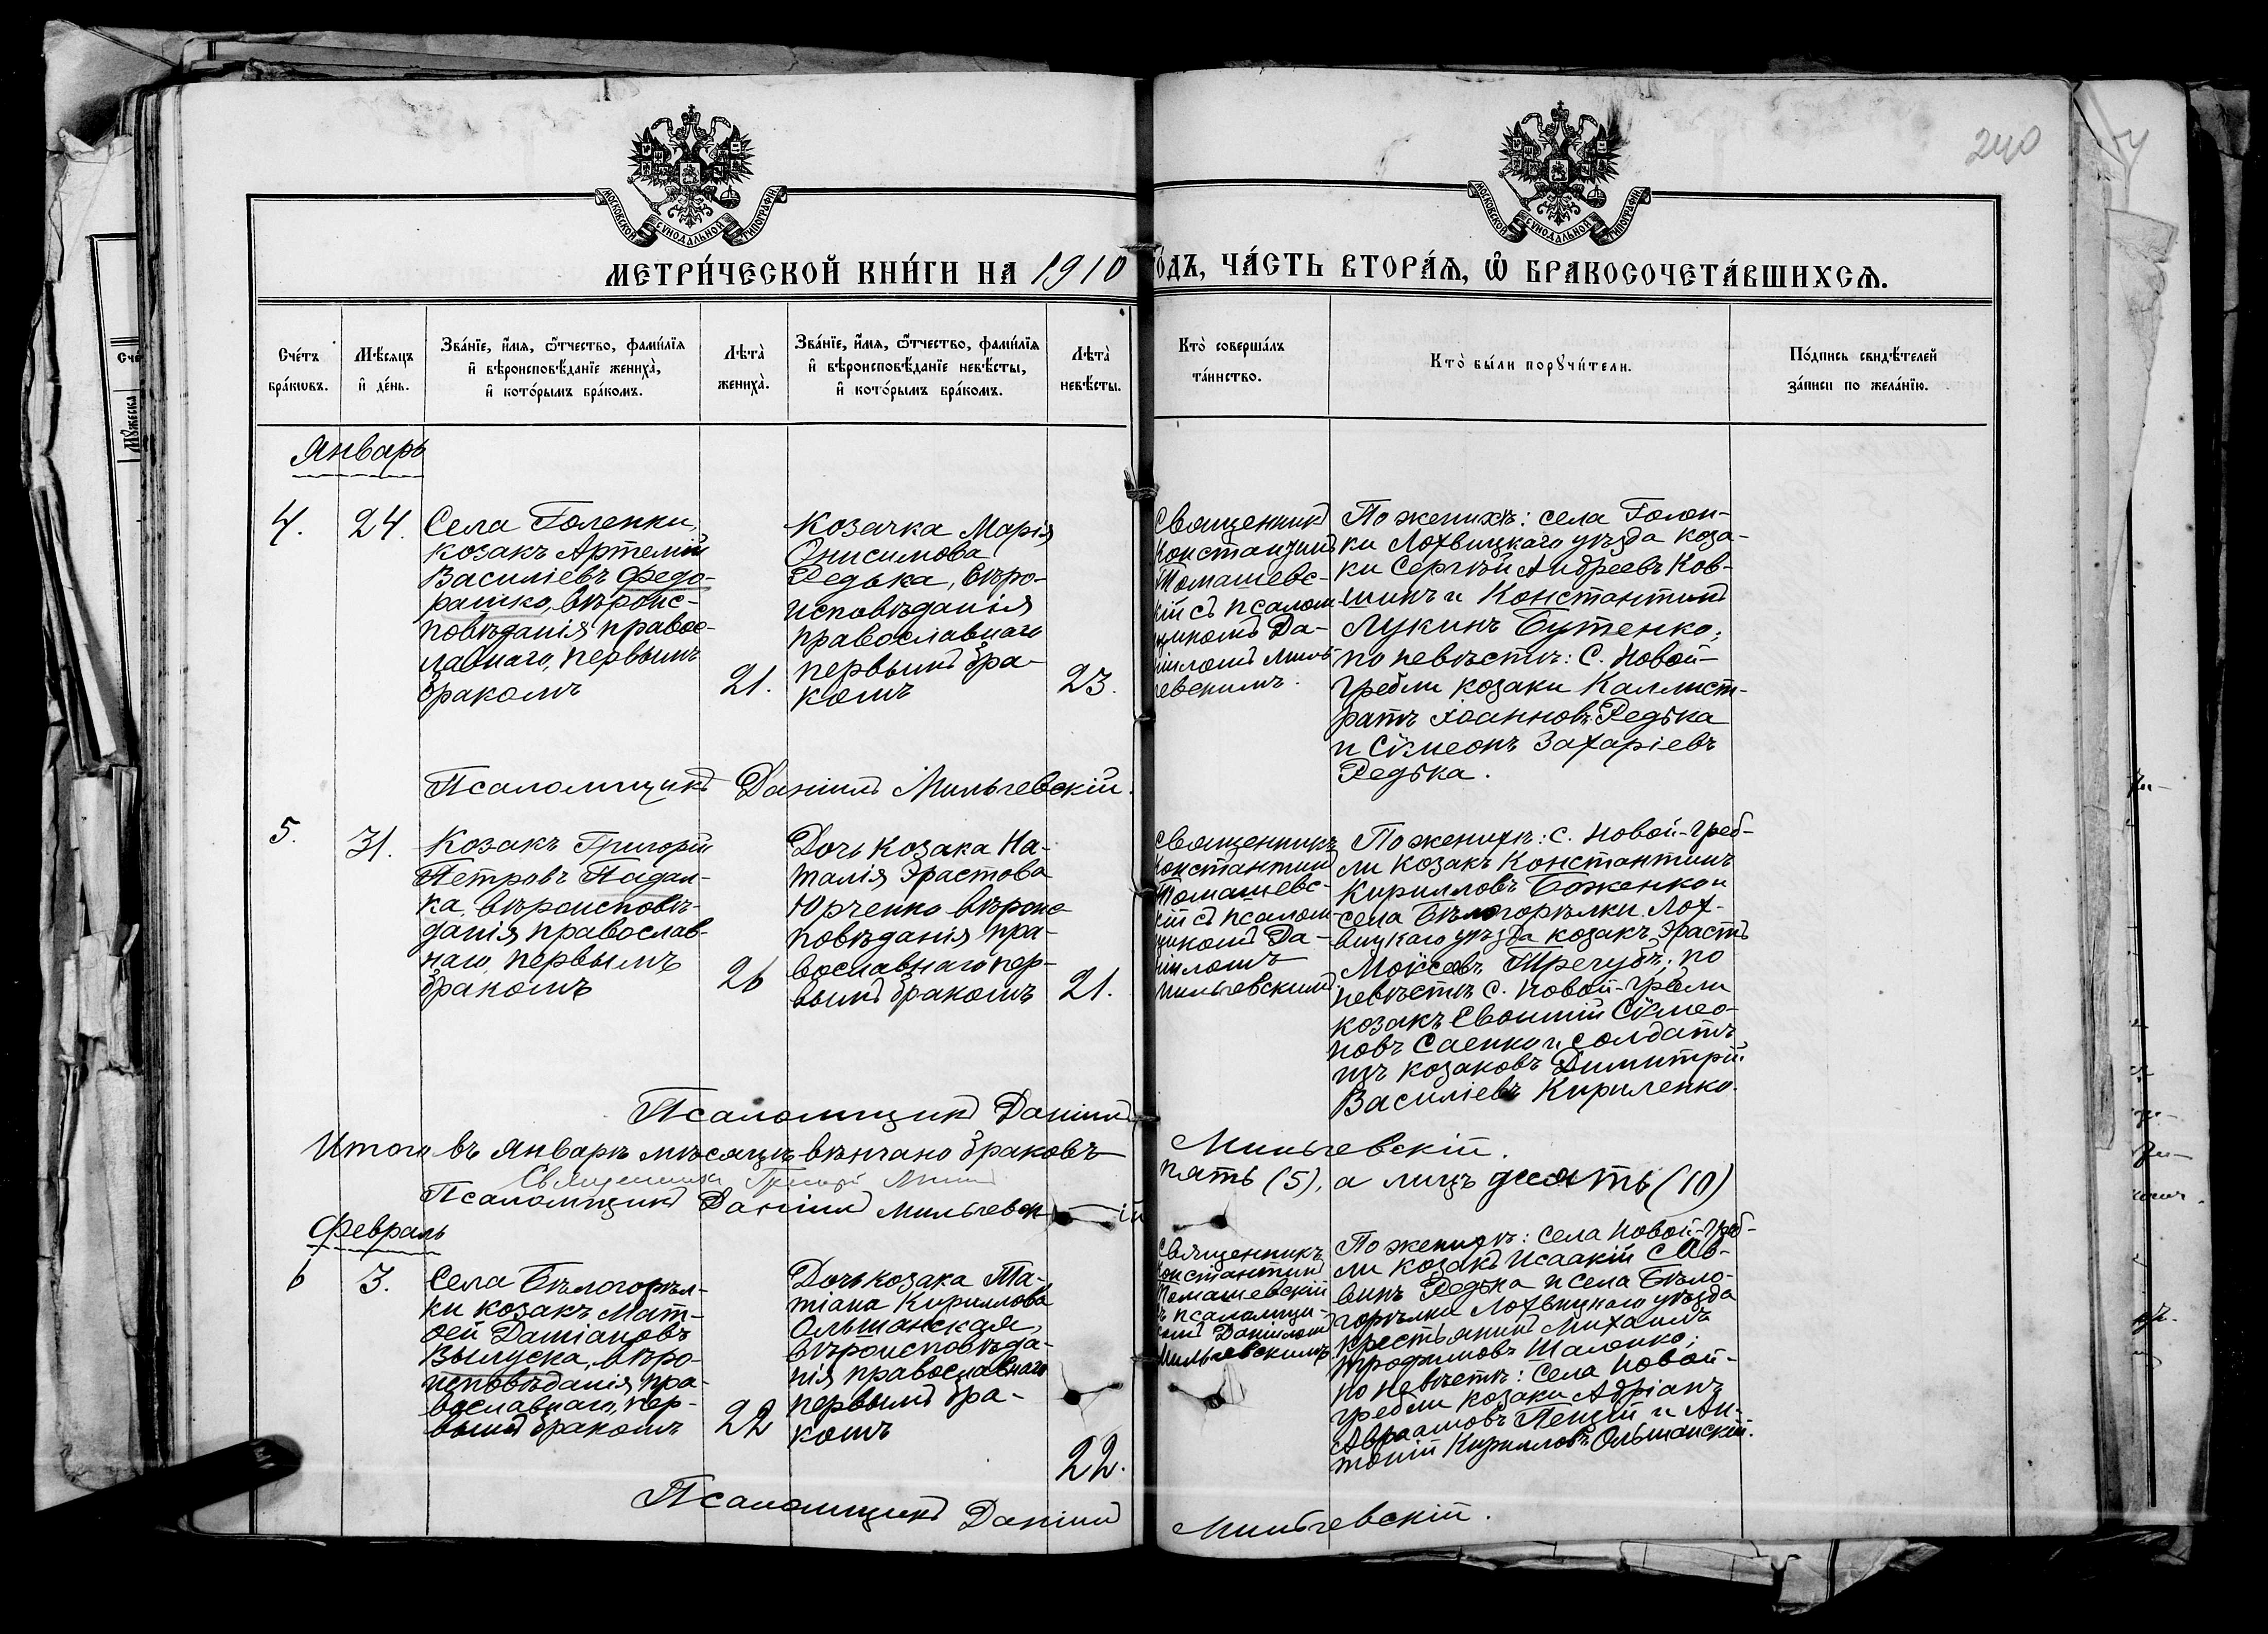 240
МОСКОВСКОЙ СѴНОДАЛЬНОЙ ТИПОГРАФІИ
МОСКОВСКОЙ СѴНОДАЛЬНОЙ ТИПОГРАФІИ
МЕТРИ́ЧЕСКОЙ КНИ́ГИ НА 1910
ОДЪ, ЧА́СТЬ ВТОРА́Я, Ѽ БРАКОСОЧЕТА́ВШИХСѦ.
Сче́тъ бра́кѡвъ.
Мѣ́сяцъ и҆ де́нь.
Зва́нїе, и҆́мя, ѻ҆́тчество, фами́лїя и҆ вѣроисповѣ́данїе жениха̀, и҆ кото́рымъ бра́комъ.
Лѣта̀ жениха̀.
Зва́нїе, и҆́мя, ѻ҆́тчество, фами́лїя и҆ вѣроисповѣ́данїе невѣ́сты, и҆ кото́рымъ бра́комъ.
Лѣта̀ невѣ́сты.
Кто̀ соверша́лъ та́инство.
Кто̀ бы́ли порꙋчи́тели.
По́дпись свидѣ́телей за́писи по жела́нїю.
Январь
4.
24.
Села Голенки,
козакъ Артемій
Василіевъ Федо-
рашко, вѣроис-
повѣданія правос-
лавнаго, первымъ
бракомъ
21.
Козачка Марія
Онисимова
Редька, вѣро-
исповѣданія
православнаго
первымъ бра-
комъ
23.
Священникъ
Константинъ
Томашевс-
кій съ псалом
щикомъ Да-
ніиломъ Миль-
евскимъ.
По женихѣ: села Голен-
ки Лохвицкаго уѣзда коза-
ки Сергѣй Андреевъ Ков-
шикъ и Константинъ
Лукинъ Бутенко;
по невѣстѣ: с. Новой-
Гребли козаки Каллист-
ратъ Іоанновъ Редька
и Сѵмеонъ Захаріевъ
Редька.
Псаломщикъ Даніилъ Мильгевскій.
5.
31.
Козакъ Григорій
Петровъ Падал-
ка, вѣроисповѣ-
данія православ-
наго, первымъ
бракомъ
26
Дочь козака На-
талія Эрастова
Юрченко вѣроис-
повѣданія пра-
вославнаго пер-
вымъ бракомъ
21.
Священникъ
Константинъ
Томашевс-
кій съ псалом
щикомъ Да-
ніиломъ
Мильгевскимъ
По женихѣ: с. Новой-Греб-
ли козакъ Константинъ
Кирилловъ Боженко и
села Бѣлогорѣлки Лох-
вицкаго уѣзда козакъ Эрастъ
Моѵсеевъ Тречубъ; по
невѣстѣ с. Новой-Гребли
козакъ Евѳимій Сѵмео-
новъ Саенко и солдатъ
изъ козаковъ Димитрій
Василіевъ Кириленко.
Псаломщикъ Даніилъ
Мильгевскій.
Итого въ Январѣ мѣсяцѣ вѣнчано браковъ
пять (5), а лицъ десять (10)
Священникъ
Псаломщикъ Даніилъ Мильгевскій
Февраль
6
3.
Села Бѣлогорѣл-
ки козакъ Мат-
ѳей Даміановъ
Вылуска, вѣро-
исповѣданія пра-
вославнаго, пер-
вымъ бракомъ
22
Дочь козака Та-
тіана Кириллова
Ольшанская,
вѣроисповѣда-
нія православнаго
первымъ бра-
комъ
22.
Священникъ
Константинъ
Томашевскій
съ псаломщи-
комъ Даніиломъ
Мильгевскимъ
По женихѣ: села Новой-Греб-
ли козакъ Исаакій Сав-
винъ Редька и села Бѣло-
горѣлки Лохвицкаго уѣзда
крестьянинъ Михаилъ
Трофимовъ Шаленко;
по невѣстѣ: села Новой-
Гребли козаки Адріанъ
Авраамовъ Пенцій и Ан-
тоній Кирилловъ Ольшанскій.
Псаломщикъ Даніилъ
Мильгевскій.